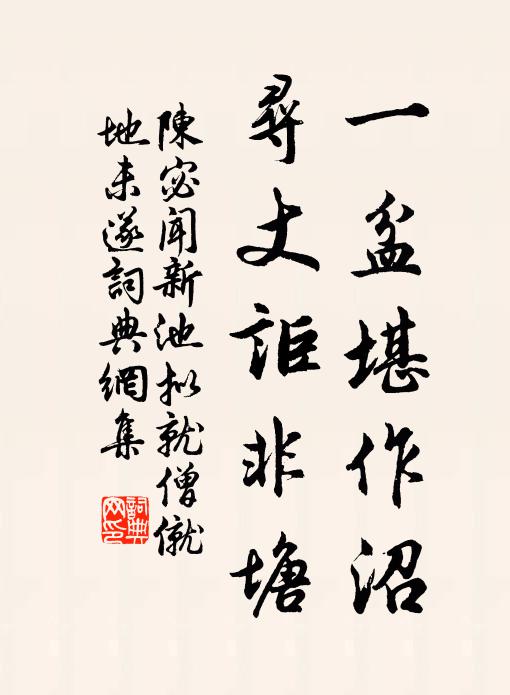 一盆堪作沼
尋丈詎非塘
陳宓聞新池拟就僧僦
地未遂詞典網集
詞典
网印